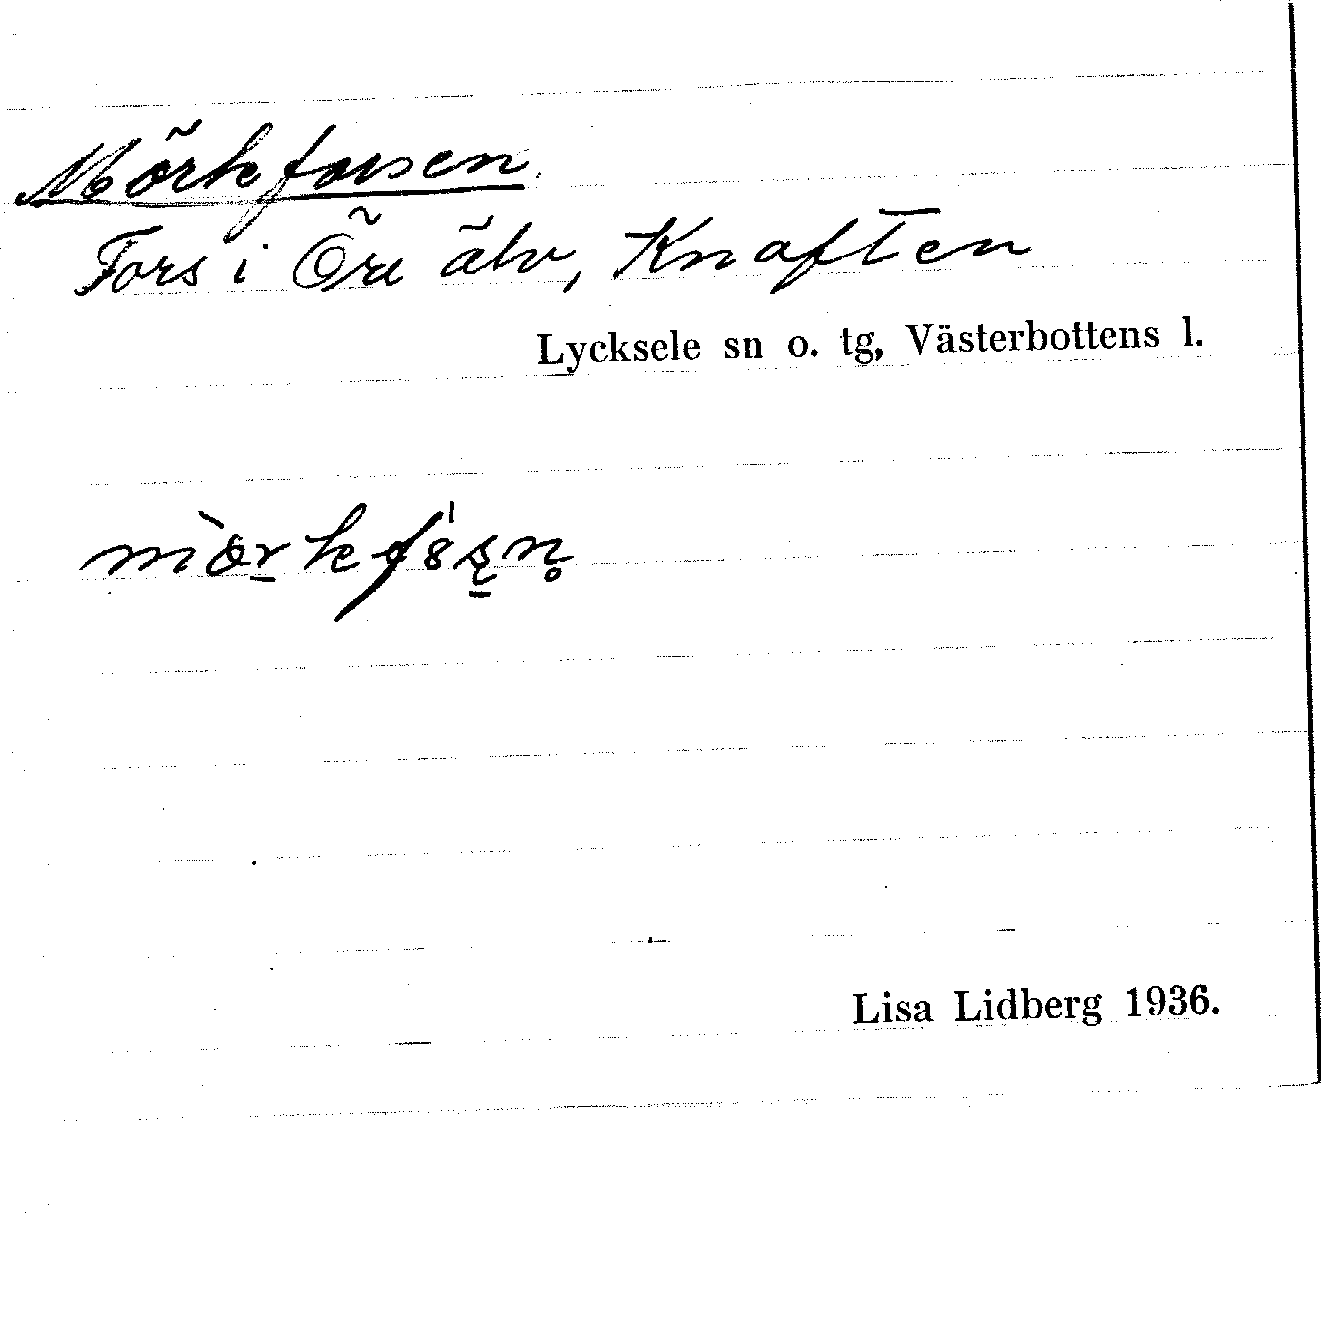 Mörkforsen.
Fors i Öre älv, Knaften
Lycksele sn o. tg, Västerbottens l.
Lisa Lidberg 1936.